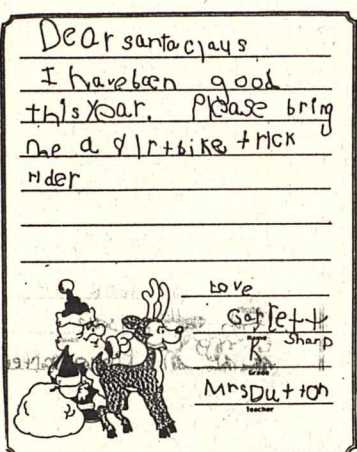 Dear santa clays
I have been good
this year. Please bring
me a dirtbike trick
rider
Love
Garrett
Sharp
K
Grade
Mrs Dutton
teacher